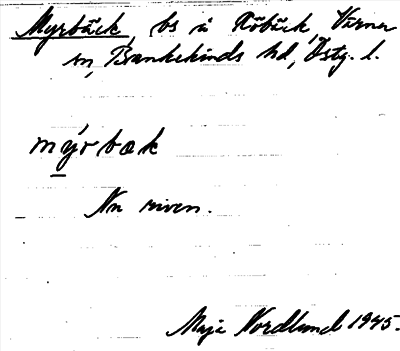 Myrbäck, bs å Röbäck, Värna
sn, Bankekinds hd, Östg. l.
mýrbæk
Nu riven.
Maja Nordlund 1945.